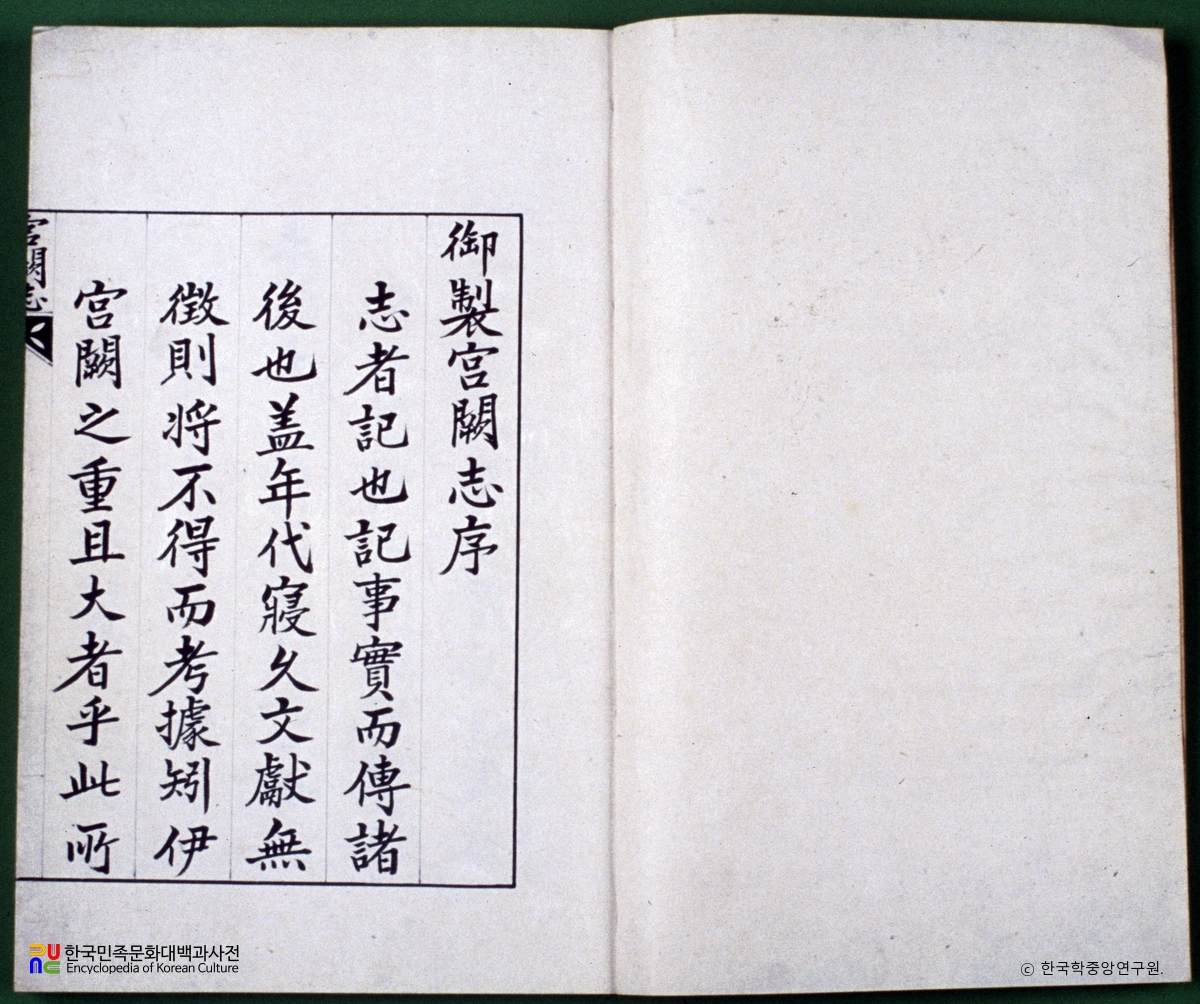 御製宮闕志序
志者記也記事實而傳諸
後也盖年代寢久文獻無
徵則将不得而考據矧伊
宮闕之重且大者乎此所
宮闕志
한국민족문화대백과사전
Encyclopedia of Korean Culture
© 한국학중앙연구원.